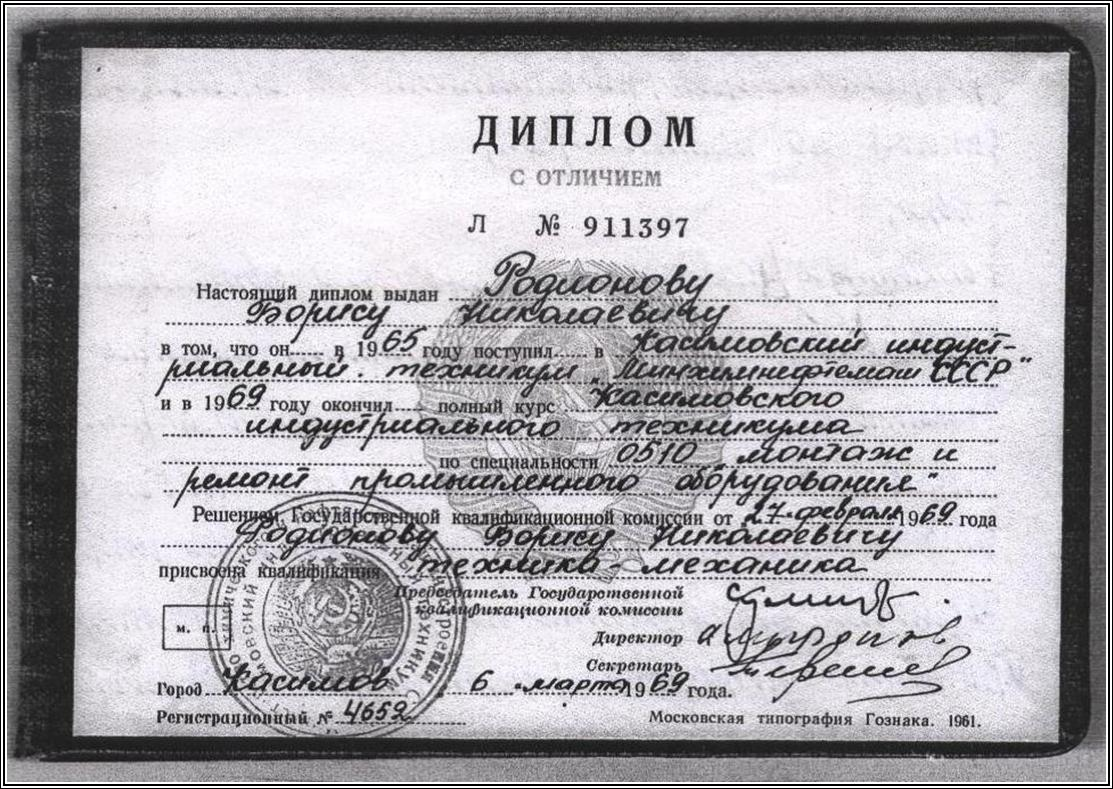 ДИПЛОМ
С ОТЛИЧИЕМ
Л № 911397
Настоящий диплом выдан Родионову
Борису Николаевичу
в том, что он в 1965 году поступил в Касимовский индуст-
риальный техникум Минхимнефтемаш СССР"
и в 1969 году окончил полный курс Касимовского
индустриального техникума
по специальности 0510 монтаж и
ремонт промышленного оборудования"
Решением Государственной квалификационной комиссии от 27 февраля 1969 года
Родионову Борису Николаевичу
присвоена квалификация техника-механика
Председатель Государственной
квалификационной комиссии
м. п.
Директор
Секретарь
Город Касимов 6 марта 1969 года.
Регистрационный № 4652
Московская типография Гознака. 1961.